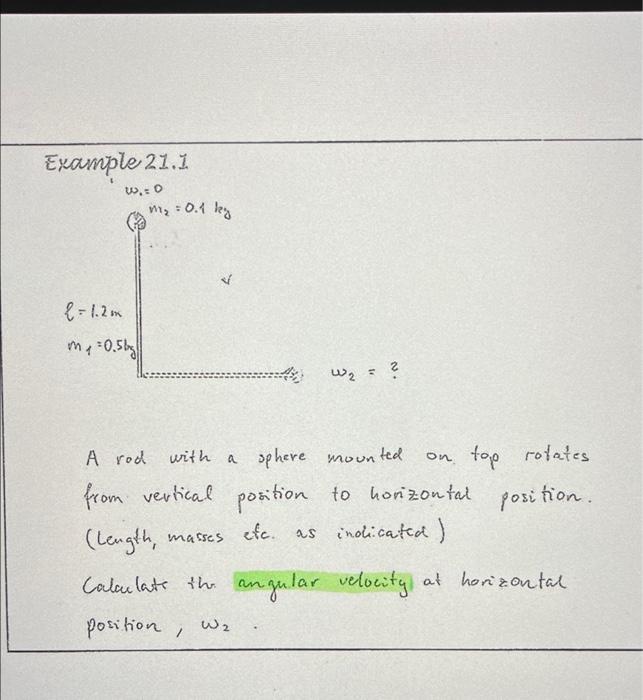 Example 21.1
ω₁=0
m₂ = 0.1 kg
l = 1.2m
m₁ = 0.5kg
ω₂ = ?
A rod with a sphere mounted on top rotates
from vertical position to horizontal position.
(Length, masses etc. as indicated)
Calculate the angular velocity at horizontal
position, ω₂.